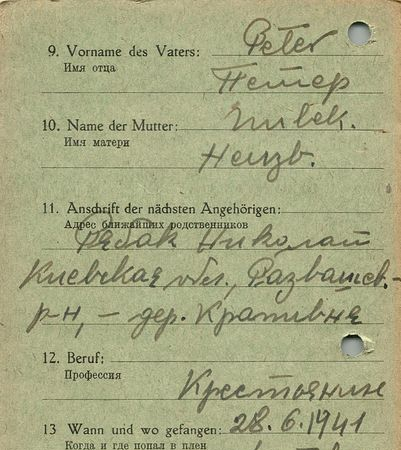 9. Vorname des Vaters: Peter
Имя отца
Петер
10. Name der Mutter: Unbek.
Имя матери
Неизв.
11. Anschrift der nächsten Angehörigen:
Адрес ближайших родственников
Рябак Николай
Киевская обл., Розважев.-
р-н, – дер. Крапивня
12. Beruf:
Профессия
Крестьянин
13 Wann und wo gefangen: 28.6.1941
Когда и где попал в плен